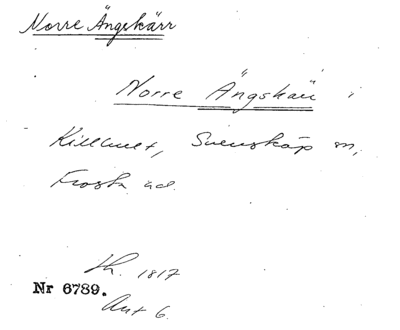 Norre Ängskärr
Norre Ängskärr i
Killhult, Svensköp sn,
Frosta hd.
Lh. 1817
Nr 6789.
Akt 6.